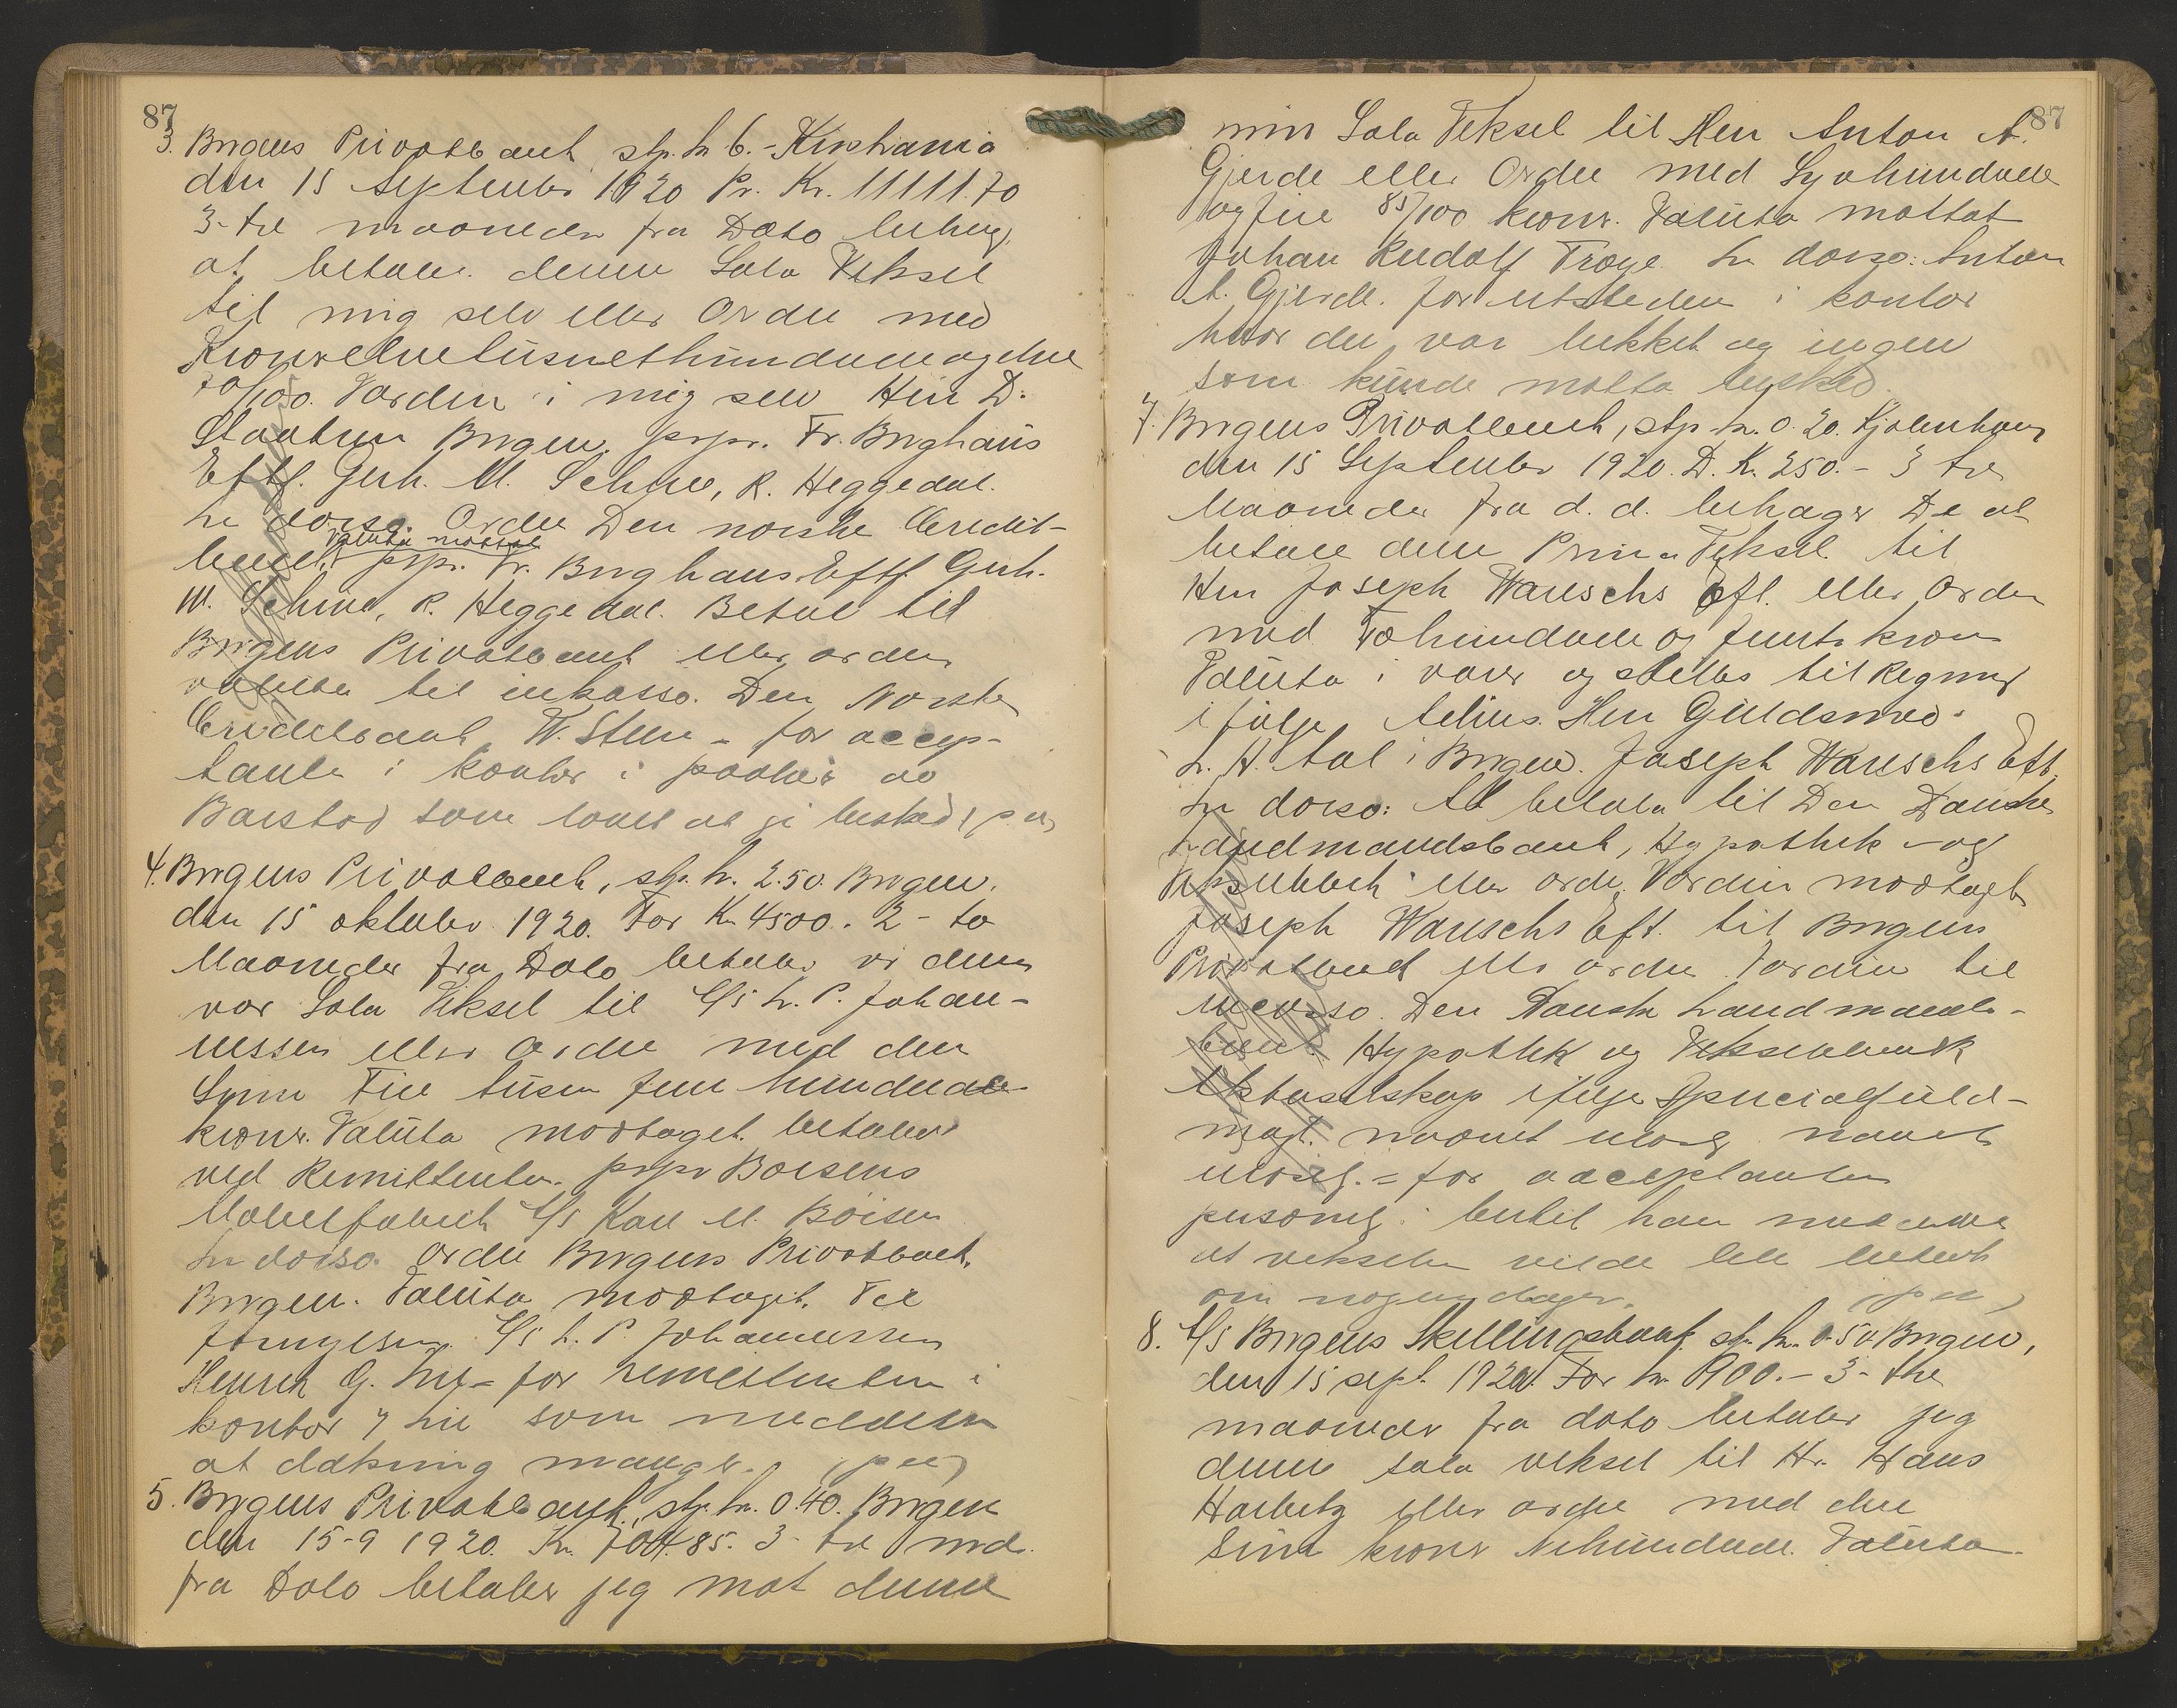 87
3. Bergens Privatbank, stp. kr 6.- Kristiania
den 15 September 1920 Pr. Kr. 11111.70
3- tre maaneder fra Dato behag
at betale denne Sola Veksel
til mig selv eller Ordre med
Kronerelvetusnethundredeogelve
70/100. Værdien i mig selv Herr D.
Bergen, prpr. Fr. Berghaus
Eftf. Gerh. M. Schive, R. Heggedal.
In dorso. Ordre Den norske Credit-
valuta mottat
bank, prpr. Fr. Berghaus Eftf. Gerh.
M. Schive, R. Heggedal. Betal til
Bergens Privatbank eller ordre
valuta til inkasso. Den Norske
Creditbank, W. Steen - for accep-
tanten i kontor i av
Barstad som lovet at gi besked,
4. Bergens Privatbank, stp. kr. 2.50. Bergen.
den 15 oktober 1920. For Kr 4500.- 2- to
Maaneder fra Dato betaler vi denne
vor Sola Veksel til A/S L. P. Johan-
nessen eller Ordre med den
Sum Fire tusen fem hundrede
kroner. Valuta modtaget. betales
ved Remittenten. prpr Boisens
Møbelfabrik A/S Karl M. Boisen
In dorso. Ordre Bergens Privatbank,
Bergen. Valuta modtaget. Til
fornyelse. A/S L. P. Johannessen
Henrik G. - for remittenten i
kontor som meddelte
at dækning mangler.
5. Bergens Privatbank, stp. kr. 0.40. Bergen
den 15-9 1920. Kr. 704.85. 3- tre md.
fra Dato betaler jeg mot denne
87
min Sola Veksel til Herr Anton A.
Gjerde eller Ordre med Syvhundrede
og fire 85/100 kroner. Valuta mottat
Johan Rudolf Troye. In dorso: Anton
A. Gjerde. for utstederen i kontor
hvor der var lukket og ingen
som kunde motta besked.
7. Bergens Privatbank, stp. kr. 0.20. Kjøbenhavn
den 15 September 1920. D. K. 250.- 3 tre
Maaneder fra d. d. behager De at
betale denne Prima Veksel til
Herr Joseph Wauschs Eft. eller Ordre
med Tohundrede og femti kroner
Valuta i varer og stilles til Regning
ifølge Advis. Herr Guldsmed
L. H. Aal i Bergen. Joseph Wauschs Eft.
In dorso: At betale til Den Danske
Landmandsbank, Hypothek - og
Vekselbank eller ordre. Værdien modtaget
Joseph Wauschs Eft. til Bergens
Privatbank eller ordre Værdien til
incasso. Den Danske Landmands-
bank. Hypothek og Vekselbank
Aktieselskap ifølge Specialfuld-
magt. navnet ulæselig navnet
ulæselig. - for acceptanten
personlig i butik han meddelte
at vekselen vilde bli betalt
om nogen dager.
8. A/S Bergens Skillingsbank stp. kr. 0.50 Bergen,
den 15 sept. 1920. For kr 900.- 3- tre
maaneder fra dato betaler jeg
denne sola veksel til Hr. Hans
Harbitz eller ordre med den
Sum kroner Nihundrede. Valuta